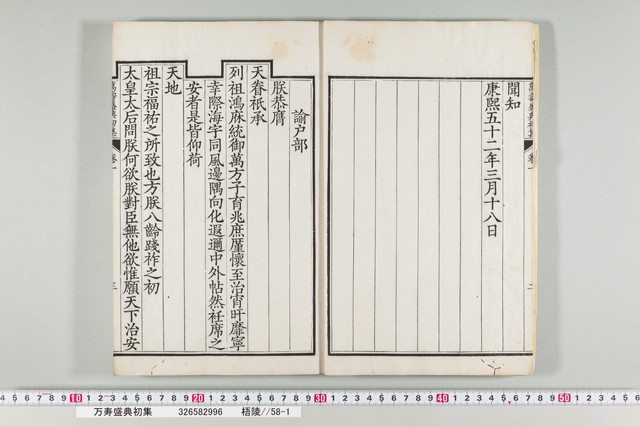 聞知
康熙五十二年三月十八日
諭户部
朕恭膺
天眷祇承
列祖鴻庥統御萬方子育兆庶厪懷至治宵旰靡寧
幸際海宇同風邊隅向化遐邇中外帖然衽席之
安者是皆仰荷
天地
祖宗福祐之所致也方朕八齡踐祚之初
太皇太后問朕何欲朕對臣無他欲惟願天下治安
萬壽盛典初集 卷一 二
萬壽盛典初集 卷一 三
10 20 30 40 50
万寿盛典初集 326582996 梧陵//58-1